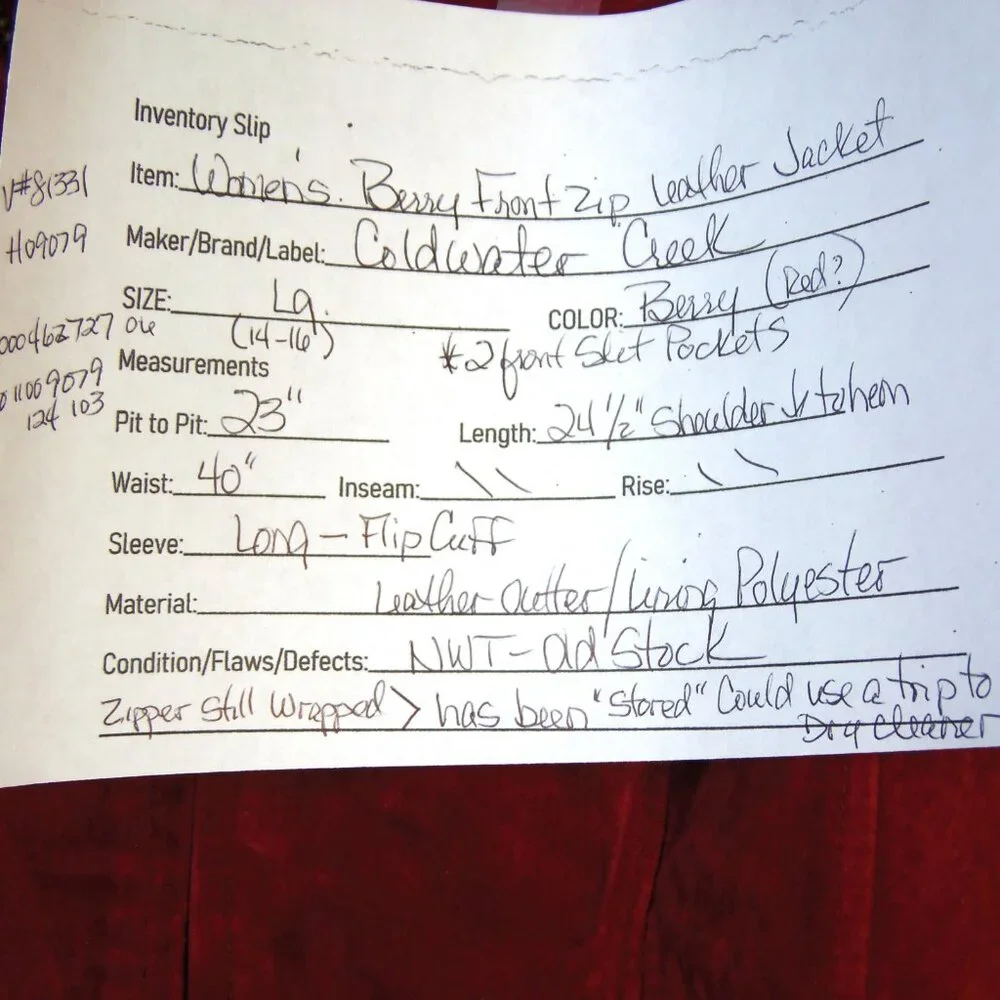 Inventory Slip
V#81331
Item: Women's. Berry Front Zip Leather Jacket
H09079
Maker/Brand/Label: Coldwater Creek
SIZE: Lg. COLOR: Berry (Red?)
000462727 (14-16) *2 front Slit Pockets
Measurements
011009079
124 103
Pit to Pit: 23" Length: 24 1/2" Shoulder
Waist: 40" Inseam: \ \ Rise: \ \
Sleeve: Long - Flip Cuff
Material: Leather Outter/Lining Polyester
Condition/Flaws/Defects: NWT - Old Stock
Zipper Still Wrapped > has been "Stored" Could use a trip to
Dry Cleaner